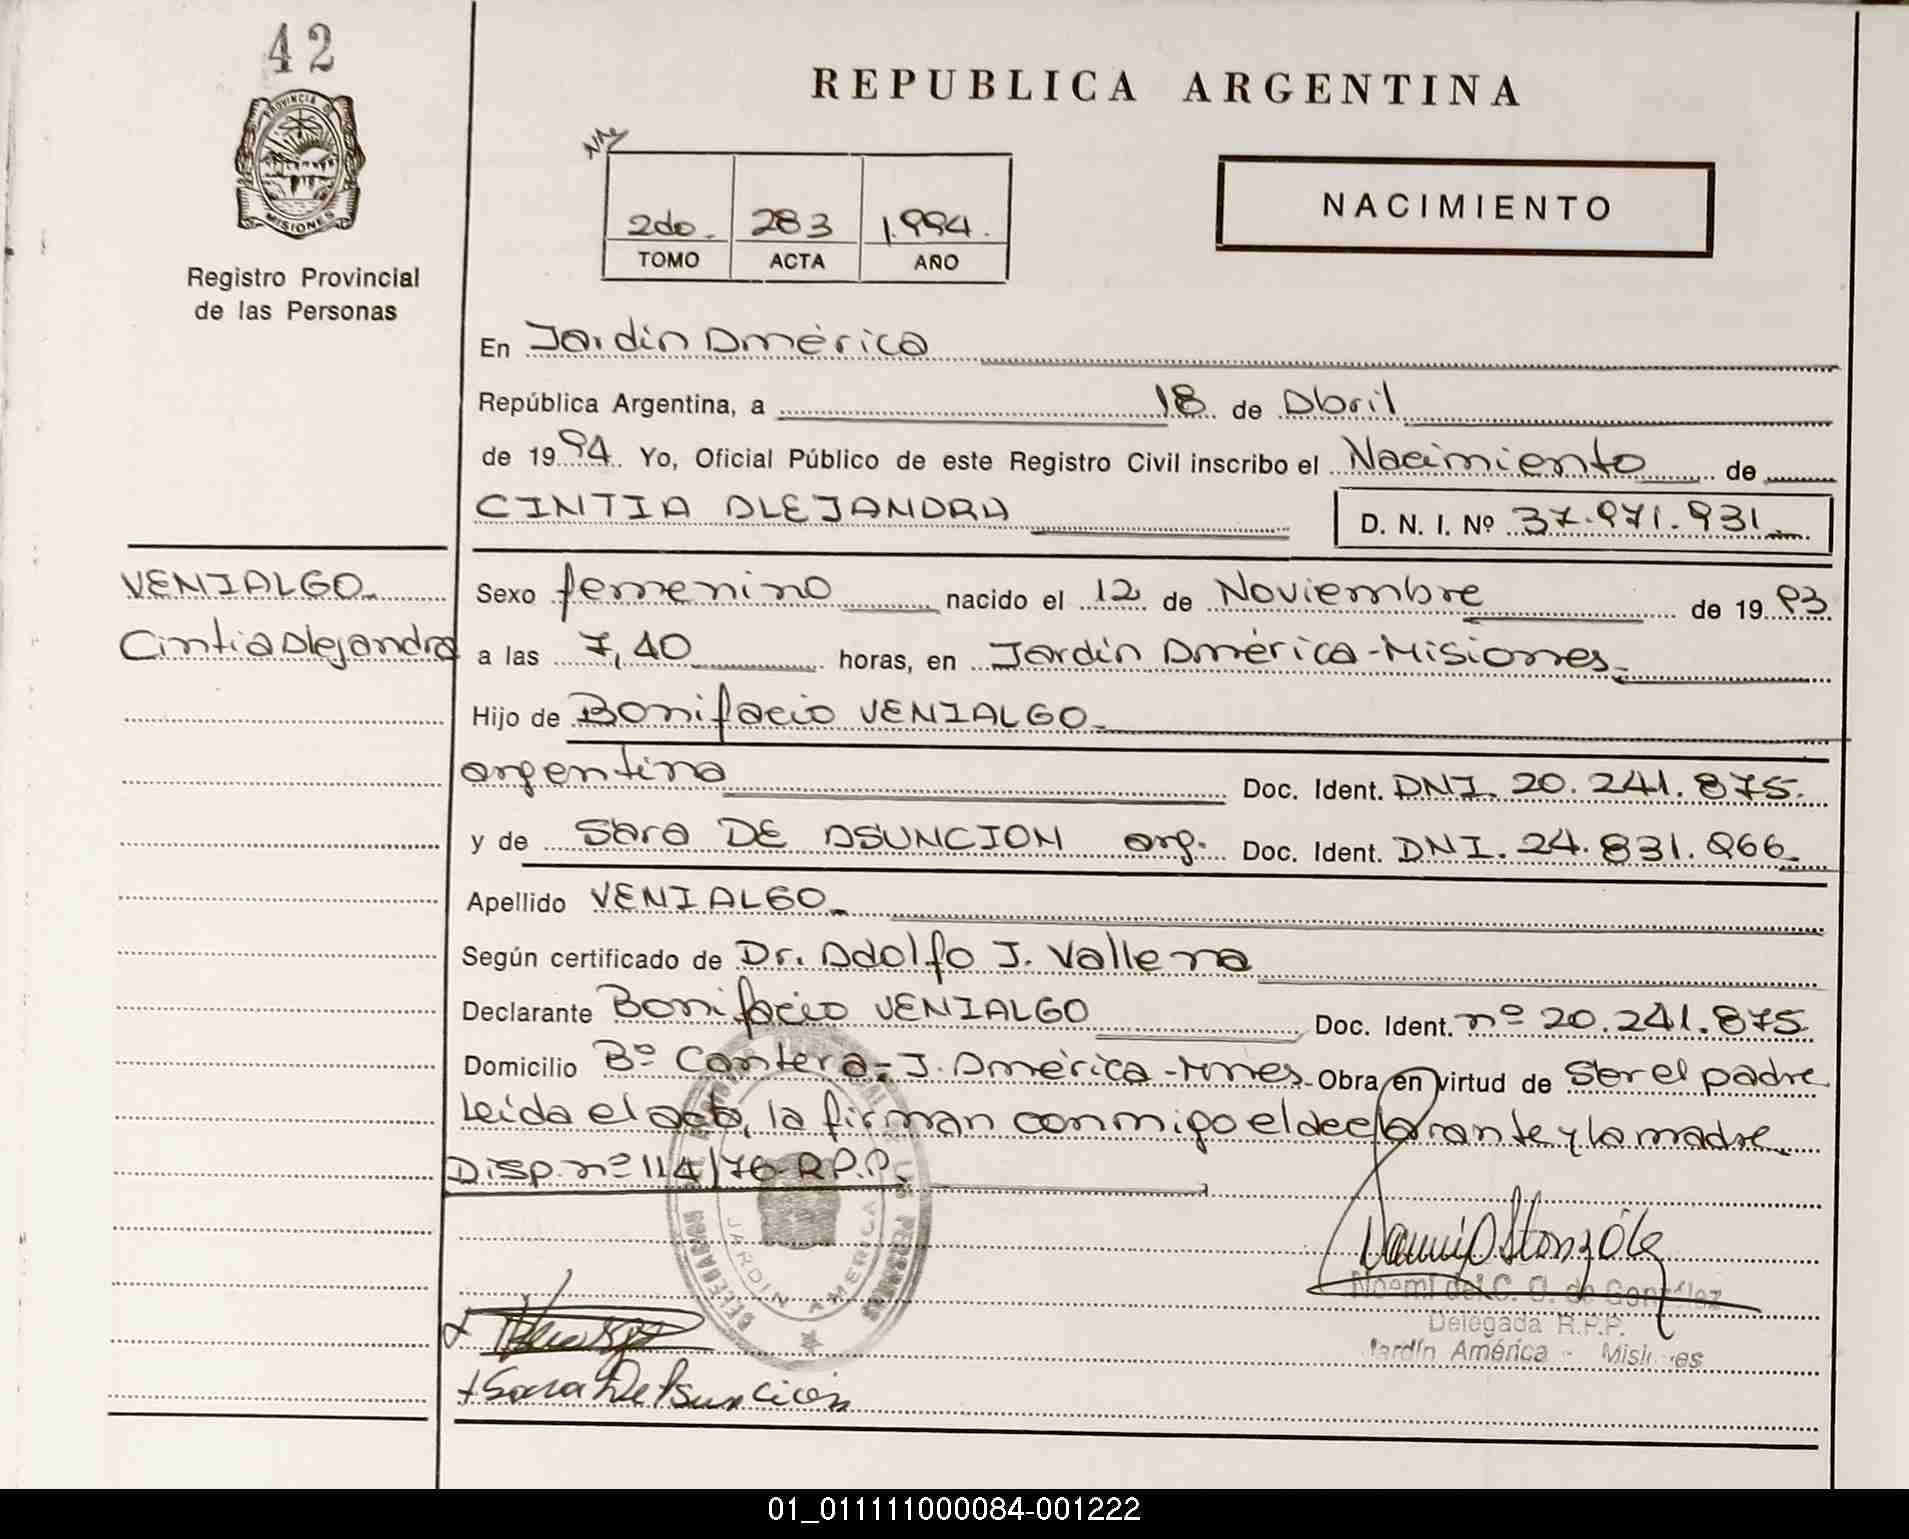 42
PROVINCIA DE
MISIONES
Registro Provincial
de las Personas
REPUBLICA ARGENTINA
2do. 283 1.994.
TOMO ACTA AÑO
NACIMIENTO
En Jardín América
República Argentina, a 18 de Abril
de 1994. Yo, Oficial Público de este Registro Civil inscribo el Nacimiento de
CINTIA ALEJANDRA D. N. I. Nº 37.971.931
VENIALGO
Cintia Alejandra
Sexo femenino nacido el 12 de Noviembre de 1993
a las 7,40 horas, en Jardín América-Misiones
Hijo de Bonifacio VENIALGO
argentina Doc. Ident. DNI. 20.241.875.
y de Sara DE ASUNCION arg. Doc. Ident. DNI. 24.831.966
Apellido VENIALGO
Según certificado de Dr. Adolfo J. Vallena
Declarante Bonifacio VENIALGO Doc. Ident. nº 20.241.875
Domicilio Bº Cantera-J. América-Mnes. Obra en virtud de Ser el padre
Leída el acta, la firman conmigo el declarante y la madre
Disp. nº 114/76-R.P.P.
JARDIN AMERICA
Noemí del C. O. de González
Delegada R.P.P.
Jardín América - Misiones
Sara De Asunción
01_011111000084-001222